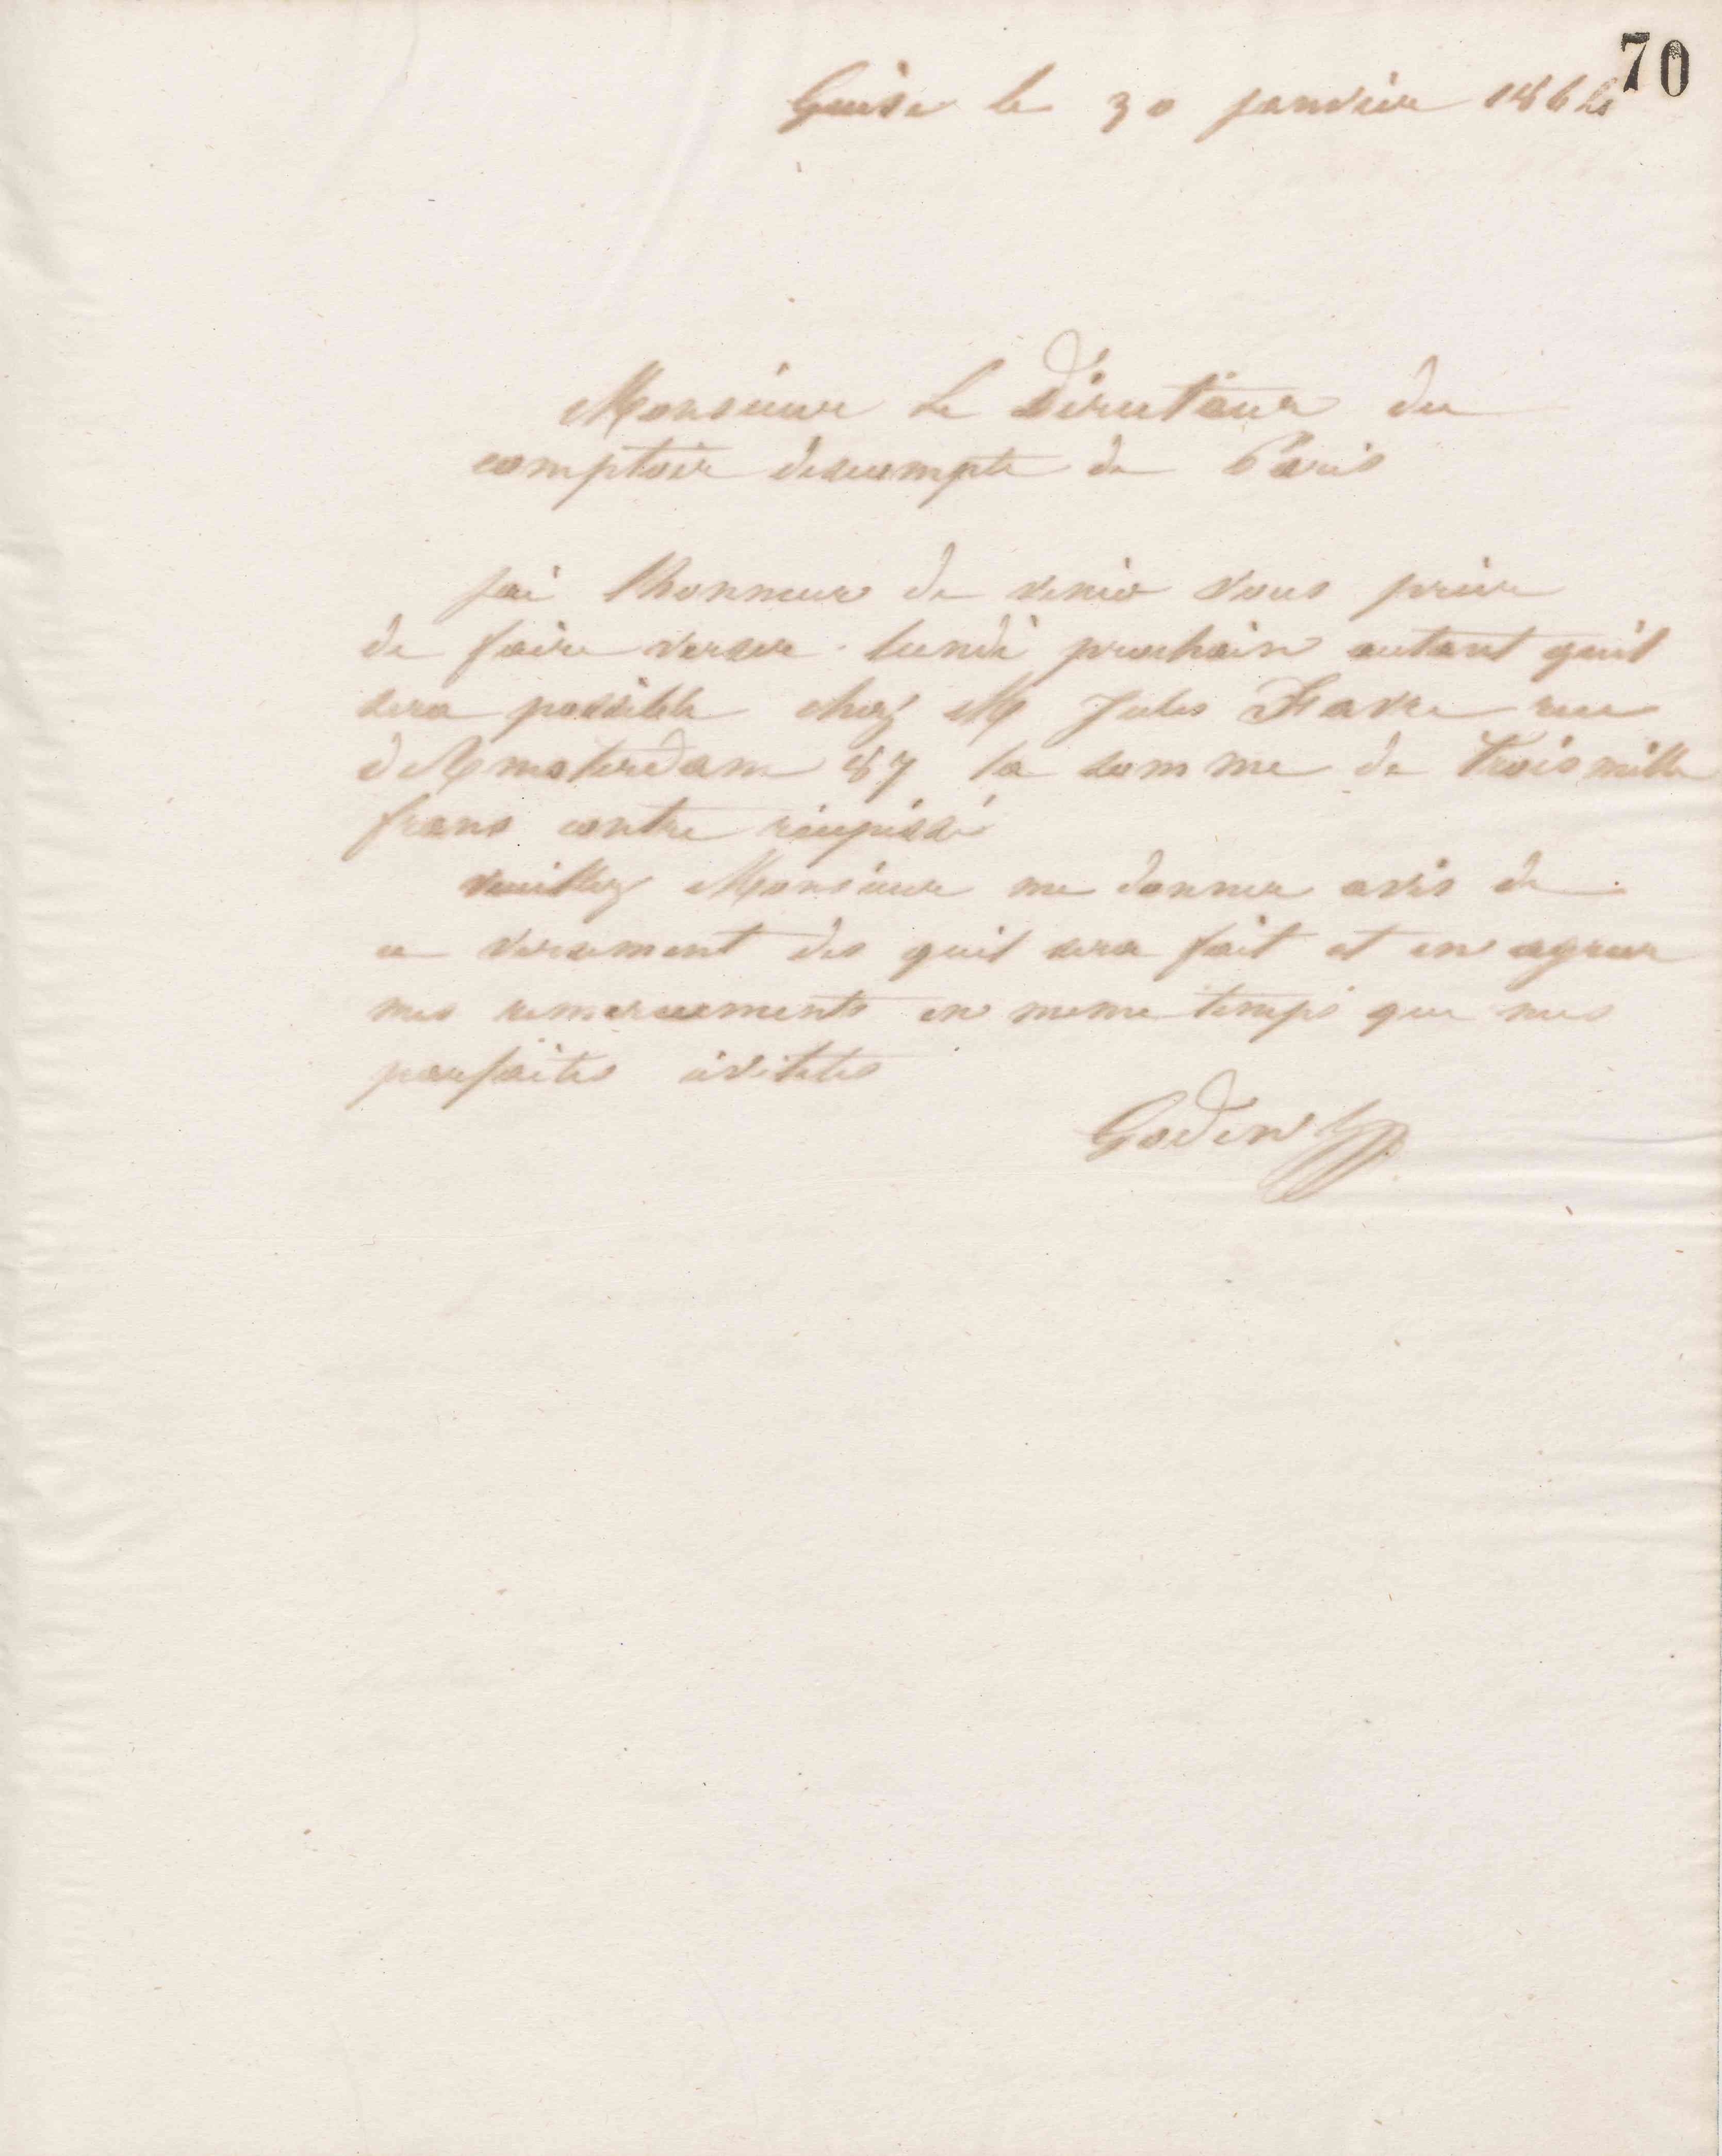 70
Guise le 30 janvier 1864
Monsieur Le Directeur du
comptoir descompte de Paris
jai lhonneur de venir vous prier
de faire verser lundi prochain autant quil
sera possible chez M Jules Favre rue
d'Amsterdam 87 la somme de trois mille
francs contre récépissé
veuillez Monsieur me donner avis de
ce versement des quil sera fait et en agreer
mes remerciements en meme temps que mes
parfaites civilités
Godin